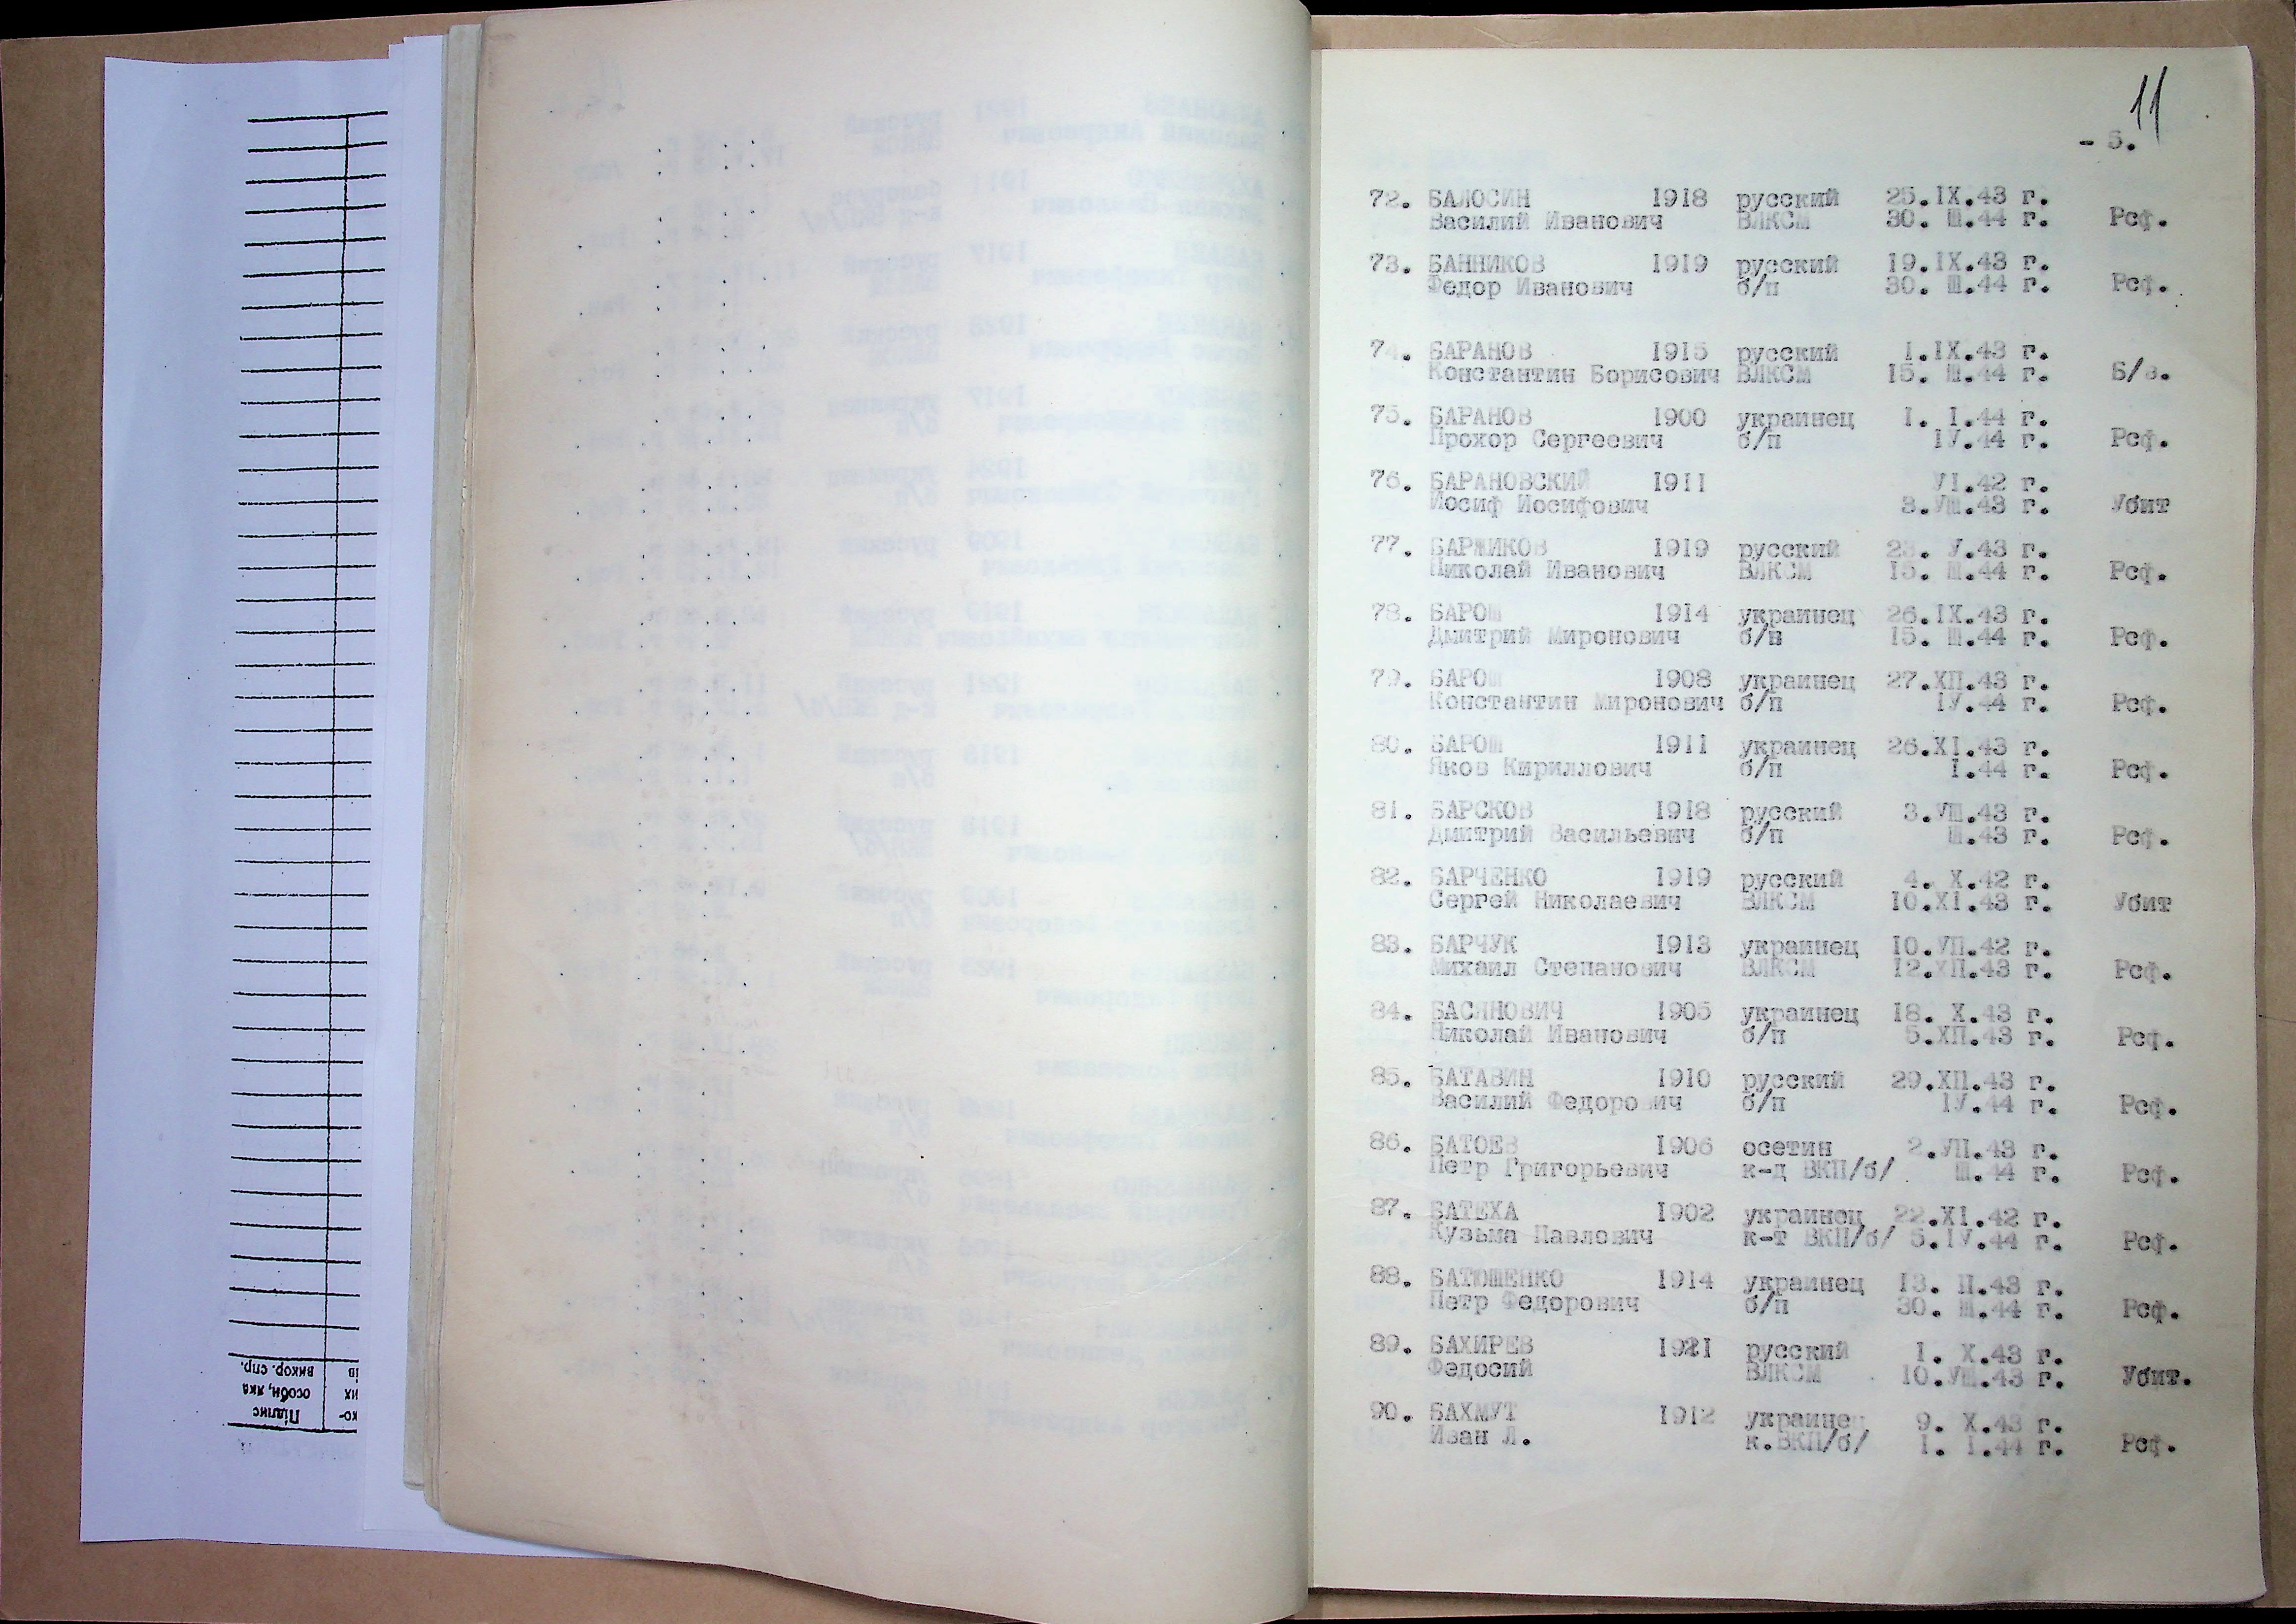 11
- 5.
72. БАЛОСИН 1918 русский 25.IX.43 г.
Василий Иванович ВЛКСМ 30. Ш.44 г. Рсф.
73. БАННИКОВ 1919 русский 19.IX.43 г.
Федор Иванович б/п 30. Ш.44 г. Рсф.
74. БАРАНОВ 1915 русский 1.IX.43 г.
Константин Борисович ВЛКСМ 15. Ш.44 г. Б/в.
75. БАРАНОВ 1900 украинец 1. I.44 г.
Прохор Сергеевич б/п IУ.44 г. Рсф.
76. БАРАНОВСКИЙ 1911 УI.42 г.
Иосиф Иосифович 3.УШ.43 г. Убит
77. БАРЖИКОВ 1919 русский 23. У.43 г.
Николай Иванович ВЛКСМ 15. Ш.44 г. Рсф.
78. БАРОШ 1914 украинец 26.IX.43 г.
Дмитрий Миронович б/п 15. Ш.44 г. Рсф.
79. БАРОШ 1908 украинец 27.ХП.43 г.
Константин Миронович б/п IУ.44 г. Рсф.
80. БАРОШ 1911 украинец 26.XI.43 г.
Яков Кириллович б/п I.44 г. Рсф.
81. БАРСКОВ 1918 русский 3.УШ.43 г.
Дмитрий Васильевич б/п Ш.43 г. Рсф.
82. БАРЧЕНКО 1919 русский 4. X.42 г.
Сергей Николаевич ВЛКСМ 10.XI.43 г. Убит
83. БАРЧУК 1913 украинец 10.УП.42 г.
Михаил Степанович ВЛКСМ 12.ХП.43 г. Рсф.
84. БАСЯНОВИЧ 1905 украинец 18. X.43 г.
Николай Иванович б/п 5.ХП.43 г. Рсф.
85. БАТАВИН 1910 русский 29.ХП.43 г.
Василий Федорович б/п IУ.44 г. Рсф.
86. БАТОЕВ 1906 осетин 2.УП.43 г.
Петр Григорьевич к-д ВКП/б/ Ш.44 г. Рсф.
87. БАТЕХА 1902 украинец 22.XI.42 г.
Кузьма Павлович к-т ВКП/б/ 5.IУ.44 г. Рсф.
88. БАТЮШЕНКО 1914 украинец 13. П.43 г.
Петр Федорович б/п 30. Ш.44 г. Рсф.
89. БАХИРЕВ 1921 русский 1. X.43 г.
Федосий ВЛКСМ 10.УШ.43 г. Убит.
90. БАХМУТ 1912 украинец 9. X.43 г.
Иван Л. к.ВКП/б/ 1. I.44 г. Рсф.
ко-
их
ів
Підпис
особи, яка
викор. спр.